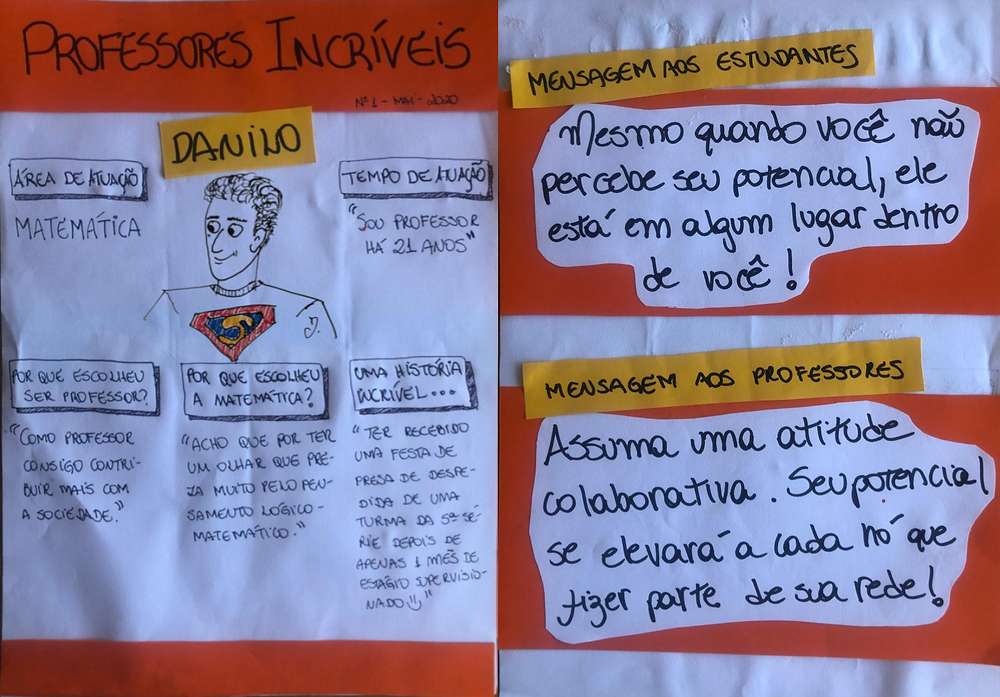 PROFESSORES INCRÍVEIS
Nº 1 - MAI - 2020
DANILO
ÁREA DE ATUAÇÃO
MATEMÁTICA
TEMPO DE ATUAÇÃO
"SOU PROFESSOR
HÁ 21 ANOS"
POR QUE ESCOLHEU
SER PROFESSOR?
"COMO PROFESSOR
CONSIGO CONTRI-
BUIR MAIS COM
A SOCIEDADE."
POR QUE ESCOLHEU
A MATEMÁTICA?
"ACHO QUE POR TER
UM OLHAR QUE PRE-
ZA MUITO PELO PEN-
SAMENTO LÓGICO-
MATEMÁTICO."
UMA HISTÓRIA
INCRÍVEL...
"TER RECEBIDO
UMA FESTA DE
PRESA DE DESPE-
DIDA DE UMA
TURMA DA 5ª SÉ-
RIE DEPOIS DE
APENAS 1 MÊS DE
ESTÁGIO SUPERVISIO-
NADO"
MENSAGEM AOS ESTUDANTES
Mesmo quando você não
percebe seu potencial, ele
está em algum lugar dentro
de você!
MENSAGEM AOS PROFESSORES
Assuma uma atitude
colaborativa. Seu potencial
se elevará a cada nó que
fizer parte de sua rede!